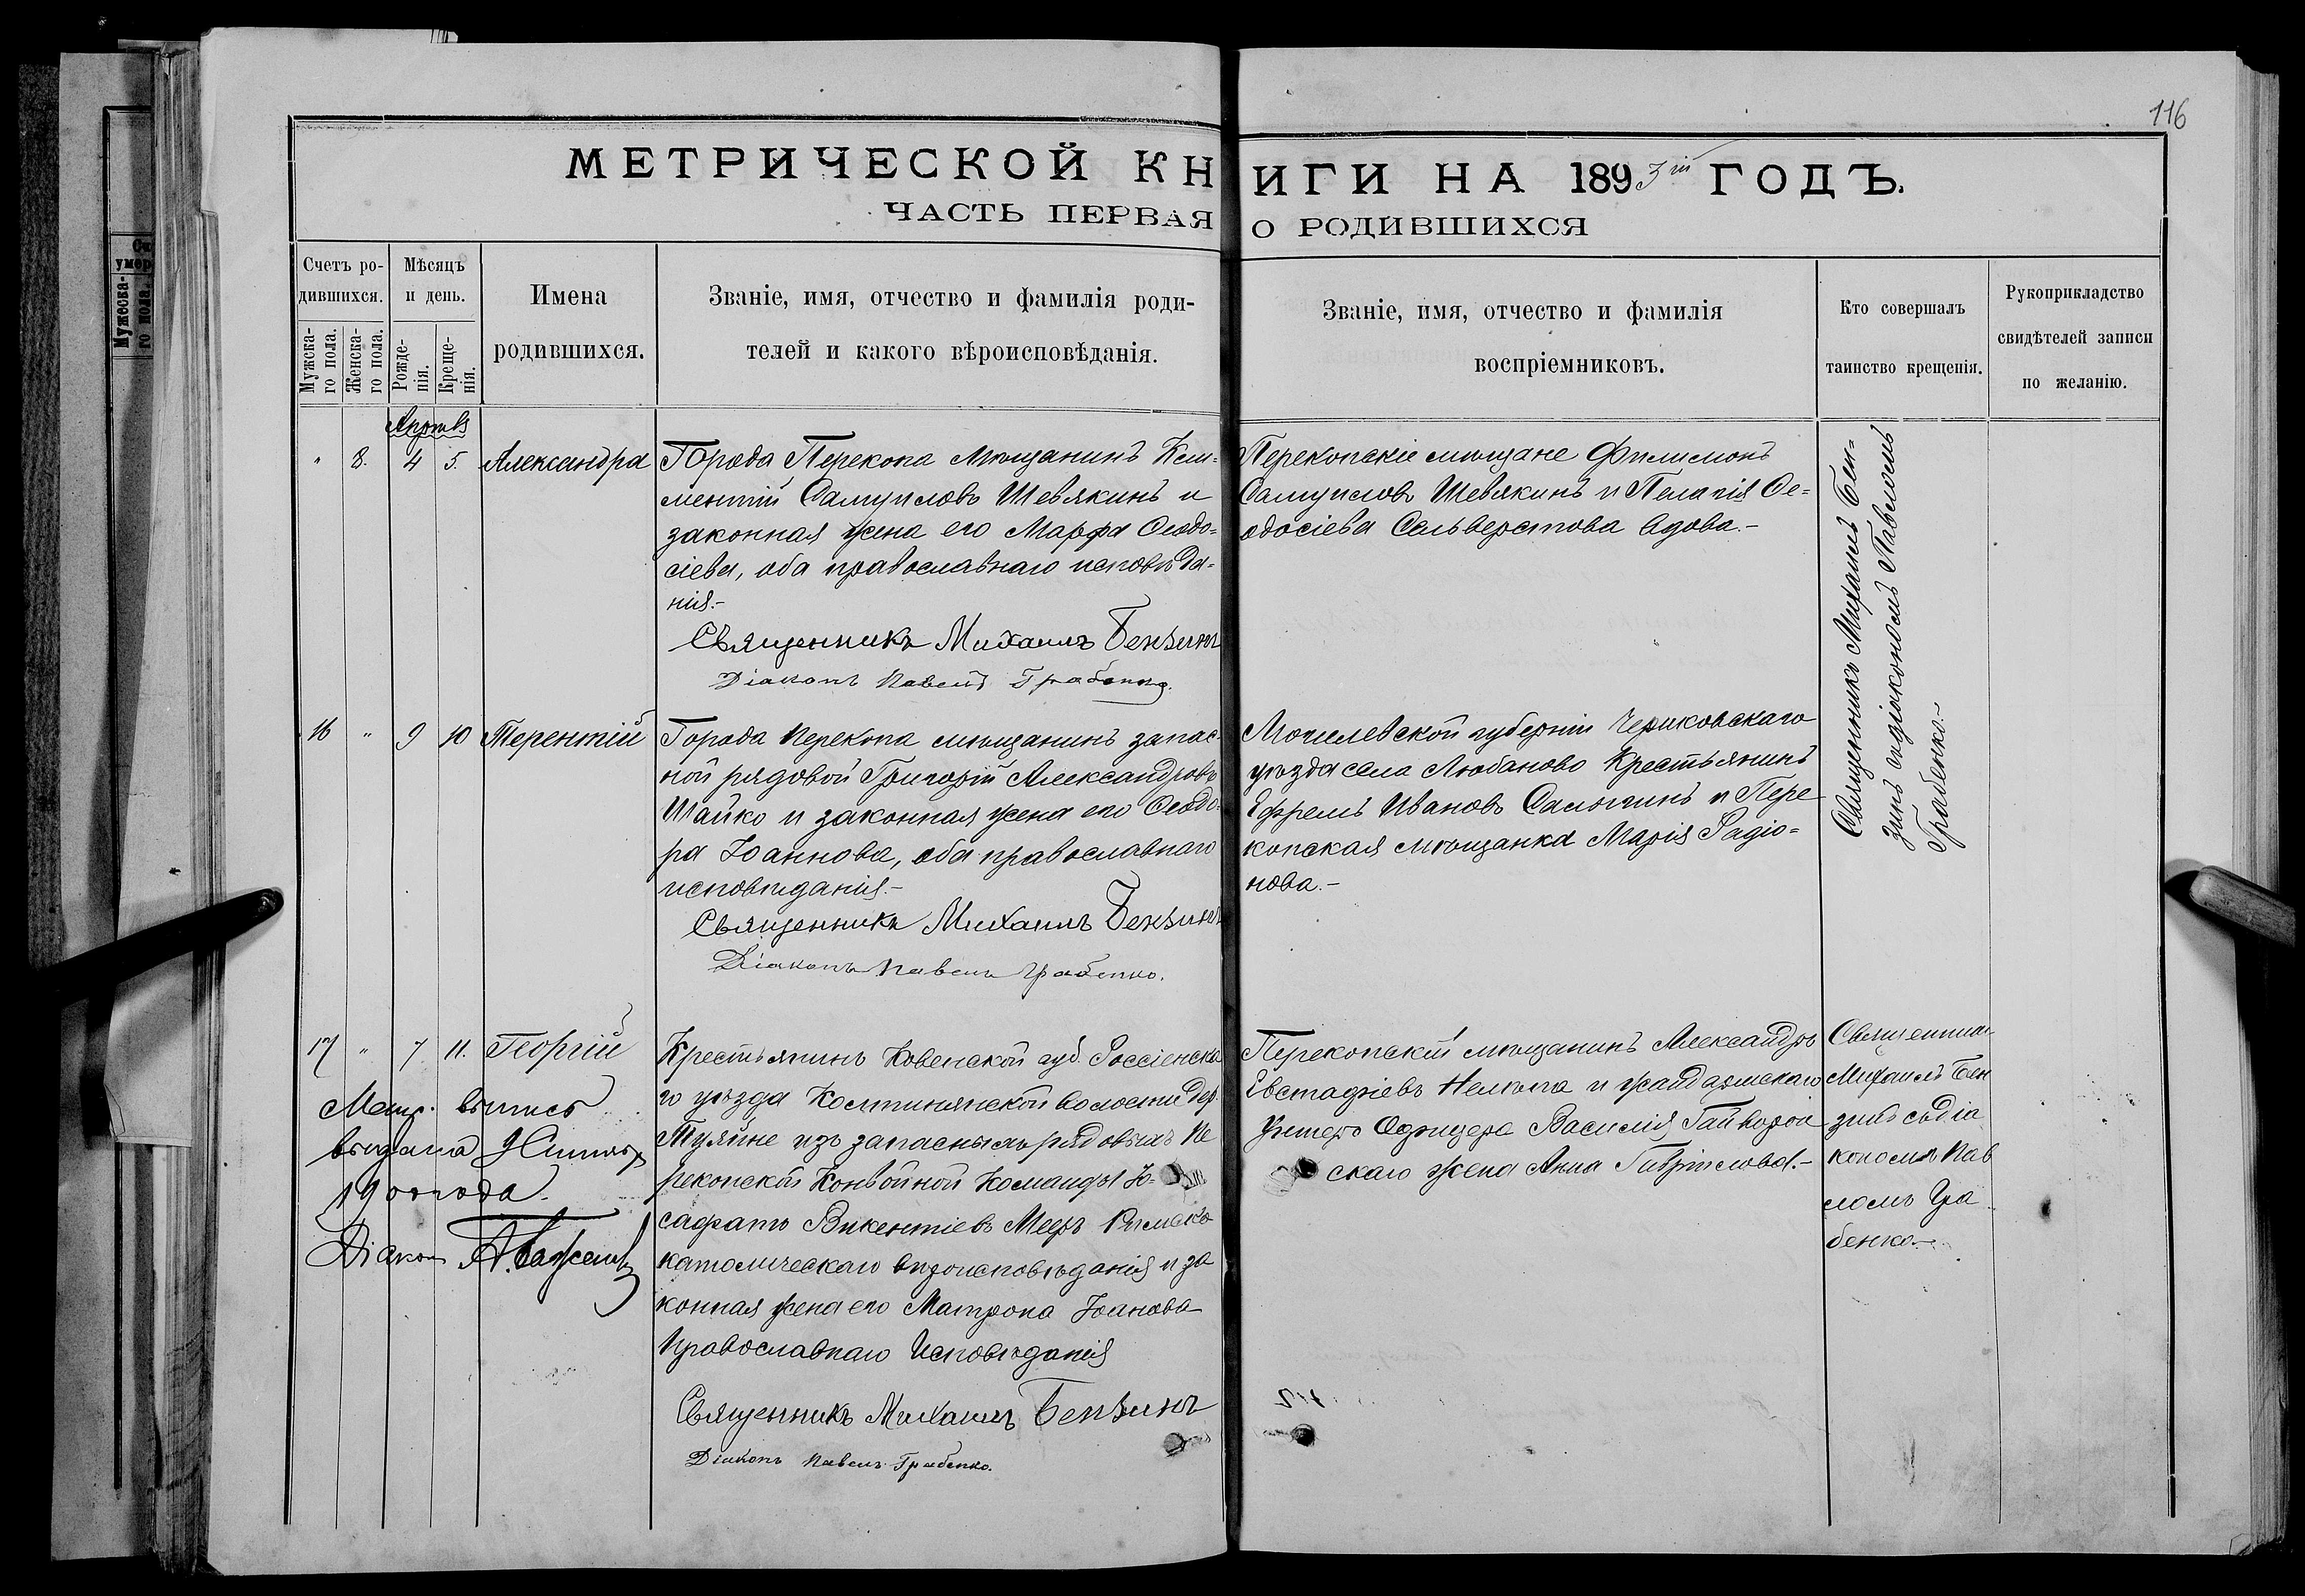 116
МЕТРИЧЕСКОЙ КНИГИ НА 1893ій ГОДЪ.
ЧАСТЬ ПЕРВАЯ О РОДИВШИХСЯ
Счетъ ро-
дившихся.
Мужска-
го пола.
Женска-
го пола.
Мѣсяцъ
и день.
Рожде-
нія.
Креще-
нія.
Имена
родившихся.
Званіе, имя, отчество и фамилія роди-
телей и какого вѣроисповѣданія.
Званіе, имя, отчество и фамилія
воспріемниковъ.
Кто совершалъ
таинство крещенія.
Рукоприкладство
свидѣтелей записи
по желанію.
" 8. 4 5. Александра
Города Перекопа мѣщанинъ Кли-
ментій Самуиловъ Шевякинъ и
законная жена его Марфа Ѳеодо-
сіева, оба православнаго исповѣда-
нія.-
Священникъ Михаилъ Бензинъ
Діаконъ Павелъ Грабенко.
Перекопскіе мѣщане Филимонъ
Самуиловъ Шевякинъ и Пелагія Ѳе-
одосіева Сельверстова вдова.-
Священникъ Михаилъ Бен-
зинъ съ діакономъ Павломъ
Грабенко.-
16 " 9 10 Терентій
Города Перекопа мѣщанинъ запас-
ной рядовой Григорій Александровъ
Шайко и законная жена его Ѳеодо-
ра Іоаннова, оба православнаго
исповѣданія.-
Священникъ Михаилъ Бензинъ
Діаконъ Павелъ Грабенко.
Могилевской губерніи Чериковскаго
уѣзда села Любаново Крестьянинъ
Ефремъ Ивановъ и Пере
копская мѣщанка Марія Радіо-
нова.-
17 " 7 11. Георгій
Крестьянинъ Ковенской губ. Россіенска
го уѣзда Колтинянской волости дер.
изъ запасныхъ рядовыхъ Пе
рекопской Конвойной Команды Ю-
сафатъ Викентіевъ Римско
католическаго вѣроисповѣданія и за
конная жена его Матрона Іоанова
Православнаго Исповѣданія
Священникъ Михаилъ Бензинъ
Діаконъ Павелъ Грабенко.
Перекопскій мѣщанинъ Александръ
Евстафіевъ и жандармскаго
Унтеръ Офицера Василія Гайворон
скаго жена Анна Гавріилова.-
Священник
Михаилъ Бен
зинъ съ діа
кономъ Пав
ломъ Гра
бенко.-
Метр. выпись
выдана
190 года.
Діакон